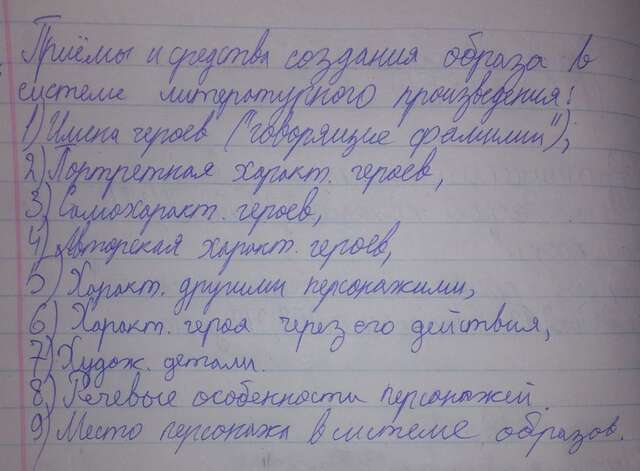 Приёмы и средства создания образа в
системе литературного произведения:
1) Имена героев ("говорящие фамилии");
2) Портретная характ. героев,
3) Самохаракт. героев,
4) Авторская характ. героев,
5) Характ. другими персонажами,
6) Характ. героя через его действия,
7) Худож. детали.
8) Речевые особенности персонажей.
9) Место персонажа в системе образов.